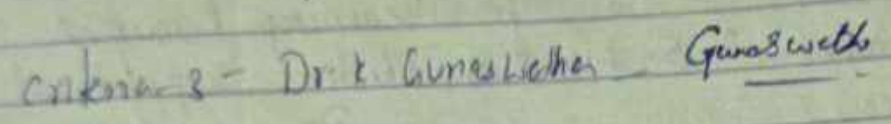 Criteria - 3 - Dr. K. Gunaswetha - Gunaswetha